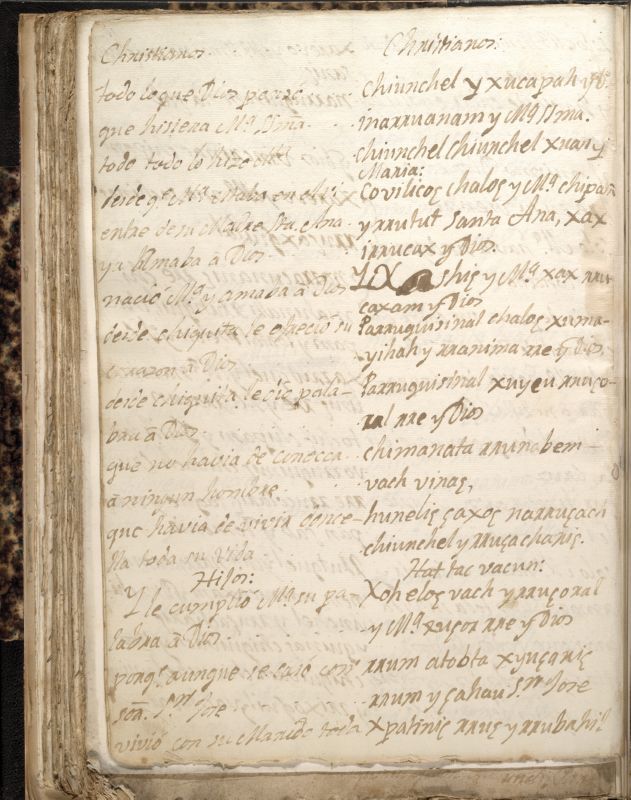 Christianos
todo lo que Dios parese
que hisiera Mª SSma.
todo todo lo hizo Mª
desde q Mª estaba en el
entre de su Madre Sta Ana.
ya Amaba a Dios.
nacio Mª y amaba a Dios
desde chiquita le ofrecio su
corazon a Dios
desde chiquita le dio pala-
bra a Dios.
que no havia de conocer
a ningun hombre.
que havia de vivir donce-
lla toda su vida
Hijos:
Y le cumplio Mª su pa-
labra a Dios.
porq. aunque se caso con
Sr. Jose
vivió con su Marido toda
Christianos:
chiunchel y xucapah y Ds.
inarruanam y Mª SSma.
chiunchel chiunchel xuan y
Maria:
Covilicos chalos y Mª chipan
y rrutut Santa Ana, xax
irrucax y Dios.
shis y Mª xax rru
caxam y Dios
Parruquisinal chalos xuma-
yihah y rranima rre y Dios
Parruquisinal xuyeu rruço-
ral rre y Dios
chimanata rrunabem-
vach vinaς,
huneliς çaxoς narruçach
chiunchel y rruçachaniς.
Hat tac vacun:
Xoheloς vach y rruçoral
y Mª xuçor rre y Dios
rrum atobta xyuçaniς
rrum y çahau Sr Jose
xpatiniς rruς y rrubahil